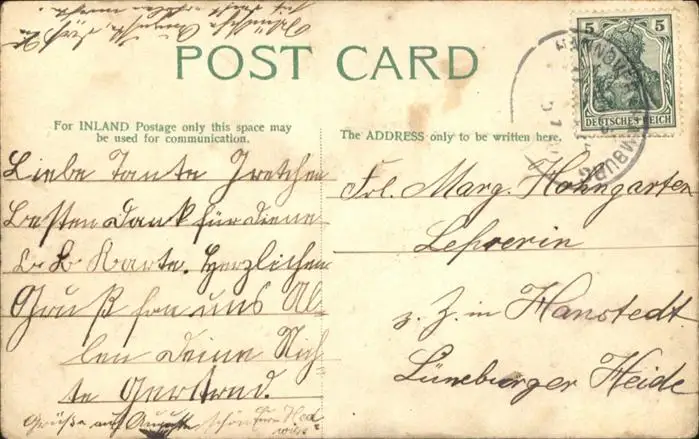 POST CARD
5 5
DEUTSCHES REICH
For INLAND Postage only this space may
be used for communication.
The ADDRESS only to be written here.
Liebe Tante Gretchen
Besten Dank für Deine
L. L. Karte. Herzlichen
Gruß fon uns Al-
len Deine Nich-
te Gertrud.
Grüße auf Auguste schön
Frl. Marg. Hohngarten
Lehrerin
z. Z. in Hanstedt
Lüneburger Heide